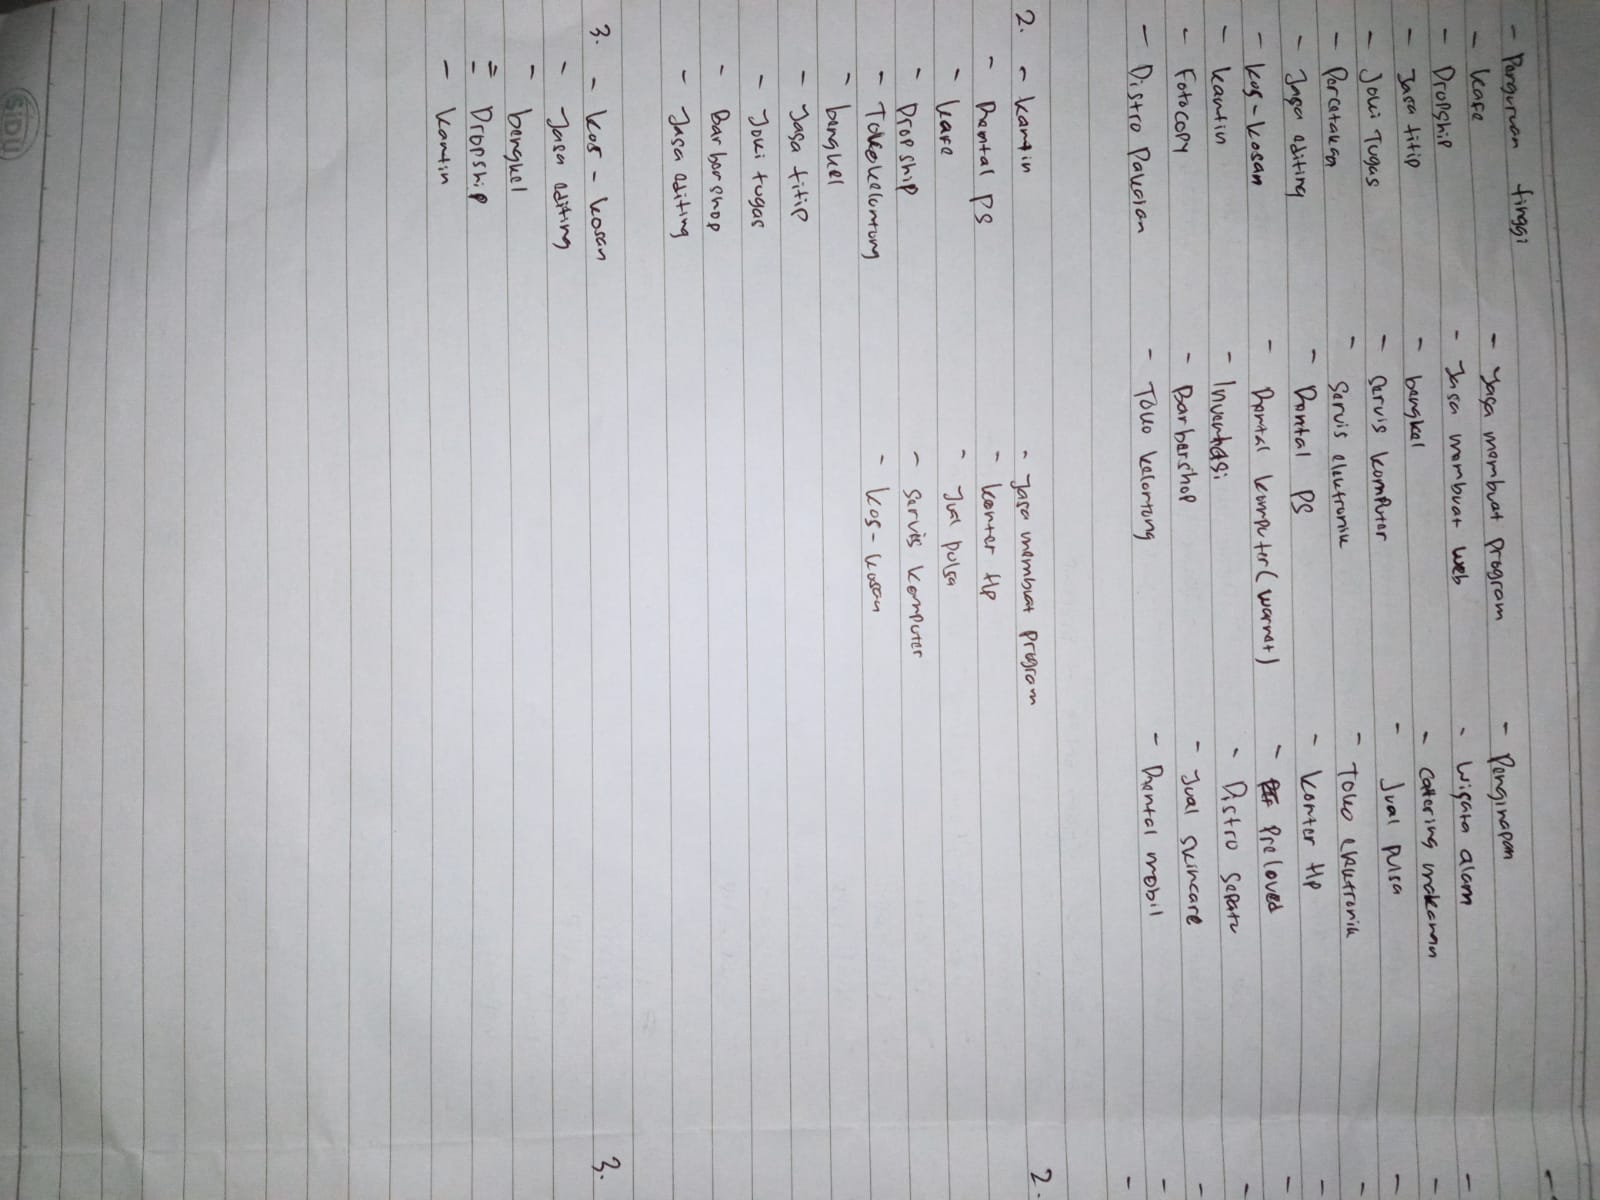 - Perguruan tinggi
- Kafe
- Dropship
- Jasa titip
- Joki Tugas
- Percetakan
- Jasa editing
- Kos-kosan
- Kantin
- Fotocopy
- Distro Pakaian
- Jasa membuat program
- Jasa membuat web
- bengkel
- Servis komputer
- Servis elektronik
- Rental PS
- Rental komputer (warnet)
- Inventasi
- Barbershop
- Toko kelontong
- Penginapan
- Wisata alam
- Catering makanan
- Jual pulsa
- Toko elektronik
- Konter Hp
- Preloved
- Distro Sepatu
- Jual skincare
- Rental mobil
2. - Kantin
- Rental PS
- Kafe
- Dropship
- Toko kelontong
- bengkel
- Jasa titip
- Joki tugas
- Barbershop
- Jasa editing
- Jasa membuat program
- Konter Hp
- Jual pulsa
- Servis komputer
- Kos-kosan
3. - Kos-kosan
- Jasa editing
- bengkel
- Dropship
- Kantin
2.
3.
SIDU